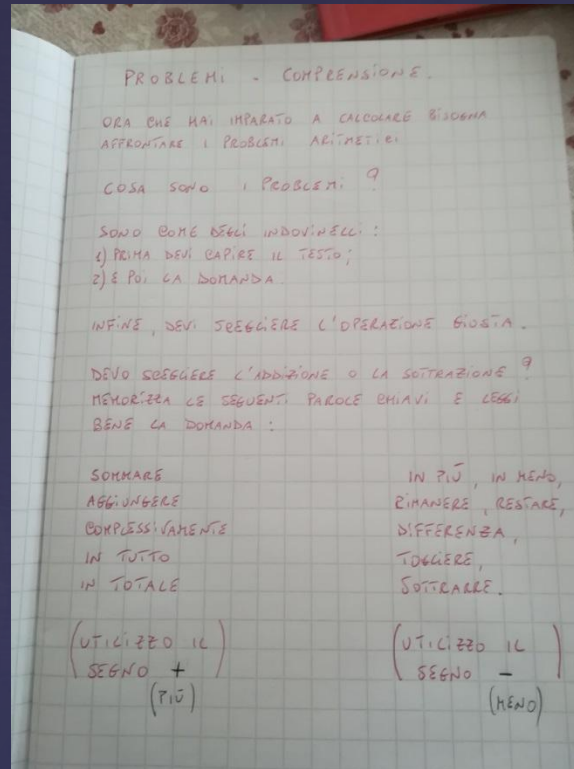 PROBLEMI - COMPRENSIONE.
ORA CHE HAI IMPARATO A CALCOLARE BISOGNA
AFFRONTARE I PROBLEMI ARITMETICI
COSA SONO I PROBLEMI ?
SONO COME DEGLI INDOVINELLI :
1) PRIMA DEVI CAPIRE IL TESTO ;
2) E POI LA DOMANDA.
INFINE, DEVI SCEGLIERE L'OPERAZIONE GIUSTA.
DEVO SCEGLIERE L'ADDIZIONE O LA SOTTRAZIONE ?
MEMORIZZA LE SEGUENTI PAROLE CHIAVI E LEGGI
BENE LA DOMANDA :
SOMMARE
AGGIUNGERE
COMPLESSIVAMENTE
IN TUTTO
IN TOTALE
(UTILIZZO IL
SEGNO +)
(PIÙ)
IN PIÙ, IN MENO,
RIMANERE, RESTARE,
DIFFERENZA,
TOGLIERE,
SOTTRARRE.
(UTILIZZO IL
SEGNO -)
(MENO)